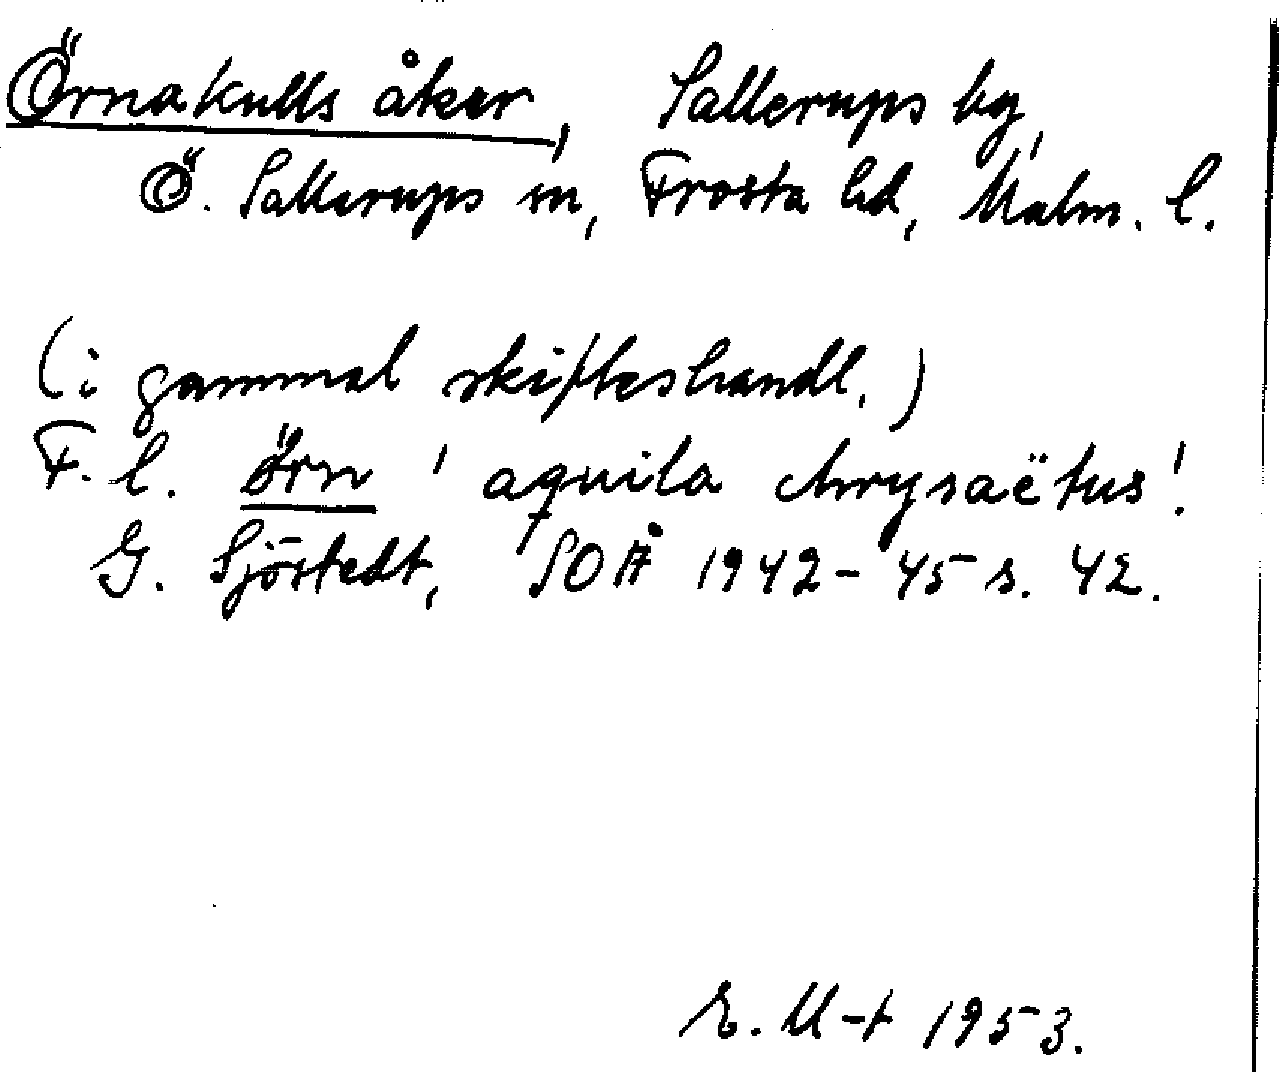 Örnakulls åker, Sallerups by,
Ö. Sallerups sn, Frosta hd, Malm. l.
(i gammal skifteshandl.)
F. l. örn 'aquila chrysaëtus'.
G. Sjöstedt, SOÅ 1942-45 s. 42.
E. M-t 1953.